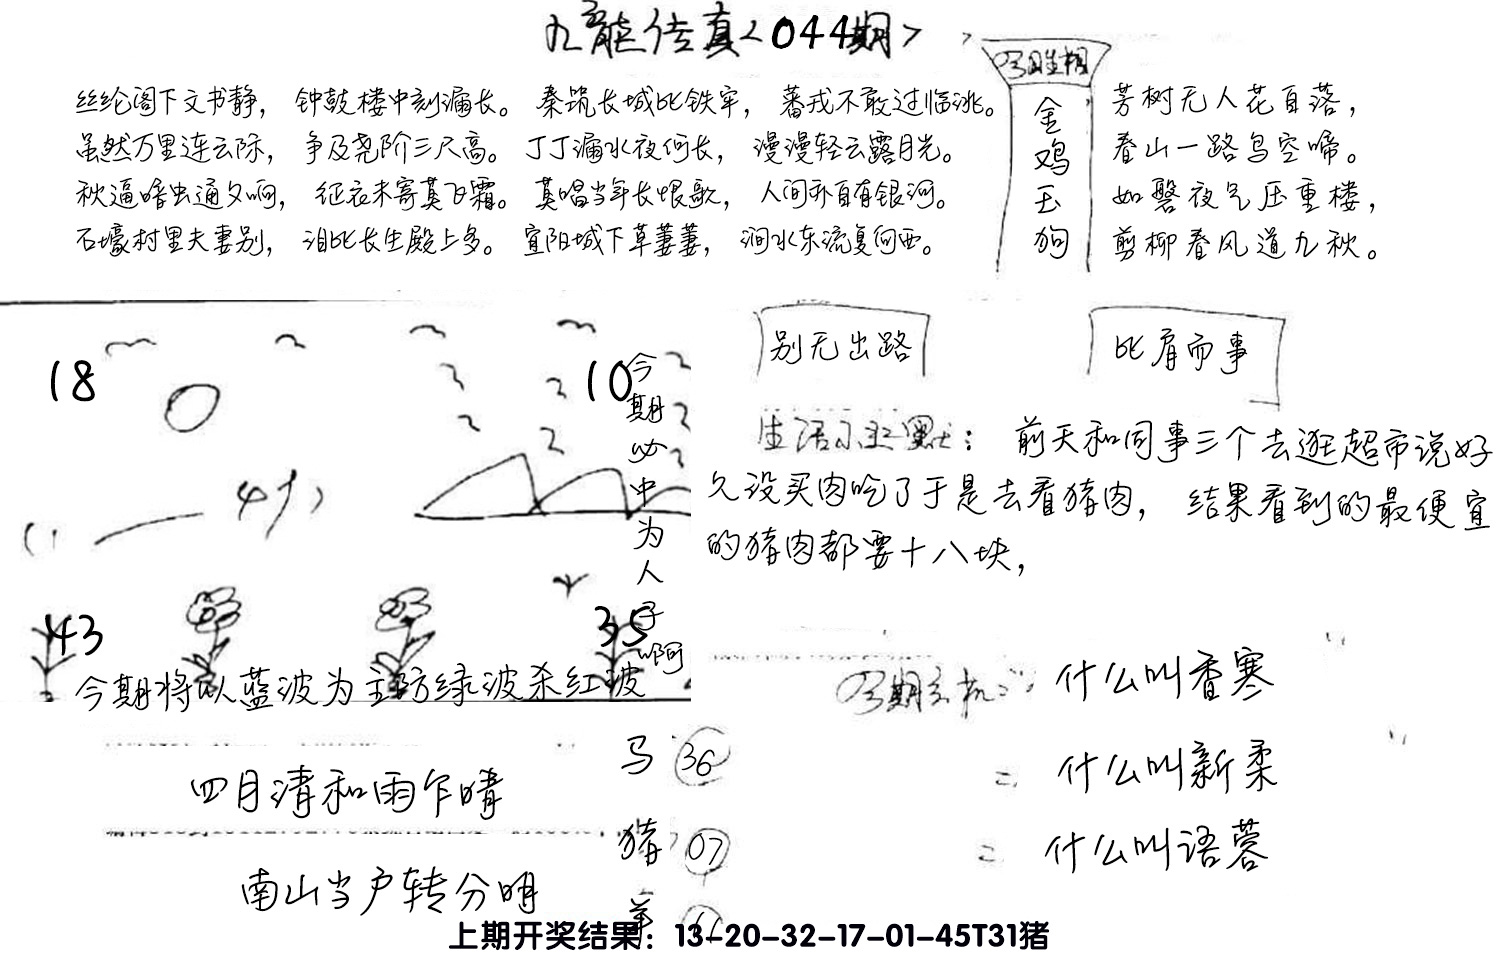 九龙传真<044期>
丝纶阁下文书静， 钟鼓楼中刻漏长。 秦筑长城比铁牢， 蕃戎不敢过临洮。
虽然万里连云际， 争及尧阶三尺高。 丁丁漏水夜何长， 漫漫轻云露月光。
秋逼暗虫通夕响， 征衣未寄莫飞霜。 莫唱当年长恨歌， 人间亦自有银河。
石壕村里夫妻别， 泪比长生殿上多。 宜阳城下草萋萋， 涧水东流复向西。
今期生相
金鸡玉狗
芳树无人花自落，
春山一路鸟空啼。
如磬夜气压重楼，
剪柳春风道九秋。
18
10
今期必中为人子啊
43
35
今期将以蓝波为主防绿波杀红波
别无出路
比肩而事
生活小幽默： 前天和同事三个去逛超市说好
久没买肉吃了于是去看猪肉， 结果看到的最便宜
的猪肉都要十八块，
今期玄机: 什么叫香寒
= 什么叫新柔
= 什么叫语蓉
四月清和雨乍晴
南山当户转分明
马 36
猪 07
羊
上期开奖结果：13-20-32-17-01-45T31猪